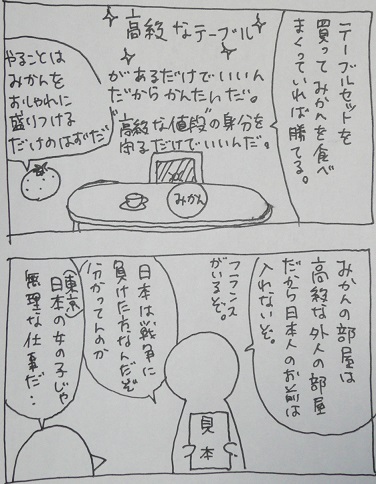 テーブルセットを
買ってみかんを食べ
まくっていれば勝てる。
高級なテーブル
があるだけでいいん
だからかんたんだ。
高級な値段の身分を
守るだけでいいんだ。
やることは
みかんを
おしゃれに
盛りつける
だけのはずだ
みかん
みかんの部屋は
高級な外人の部屋
だから日本人のお前は
入れないぞ。
フランス
がいるぞ。
見本
日本は戦争に
負けた方なんだぞ
分かってんのか
東京
日本の女の子じゃ
無理な仕事だ・・